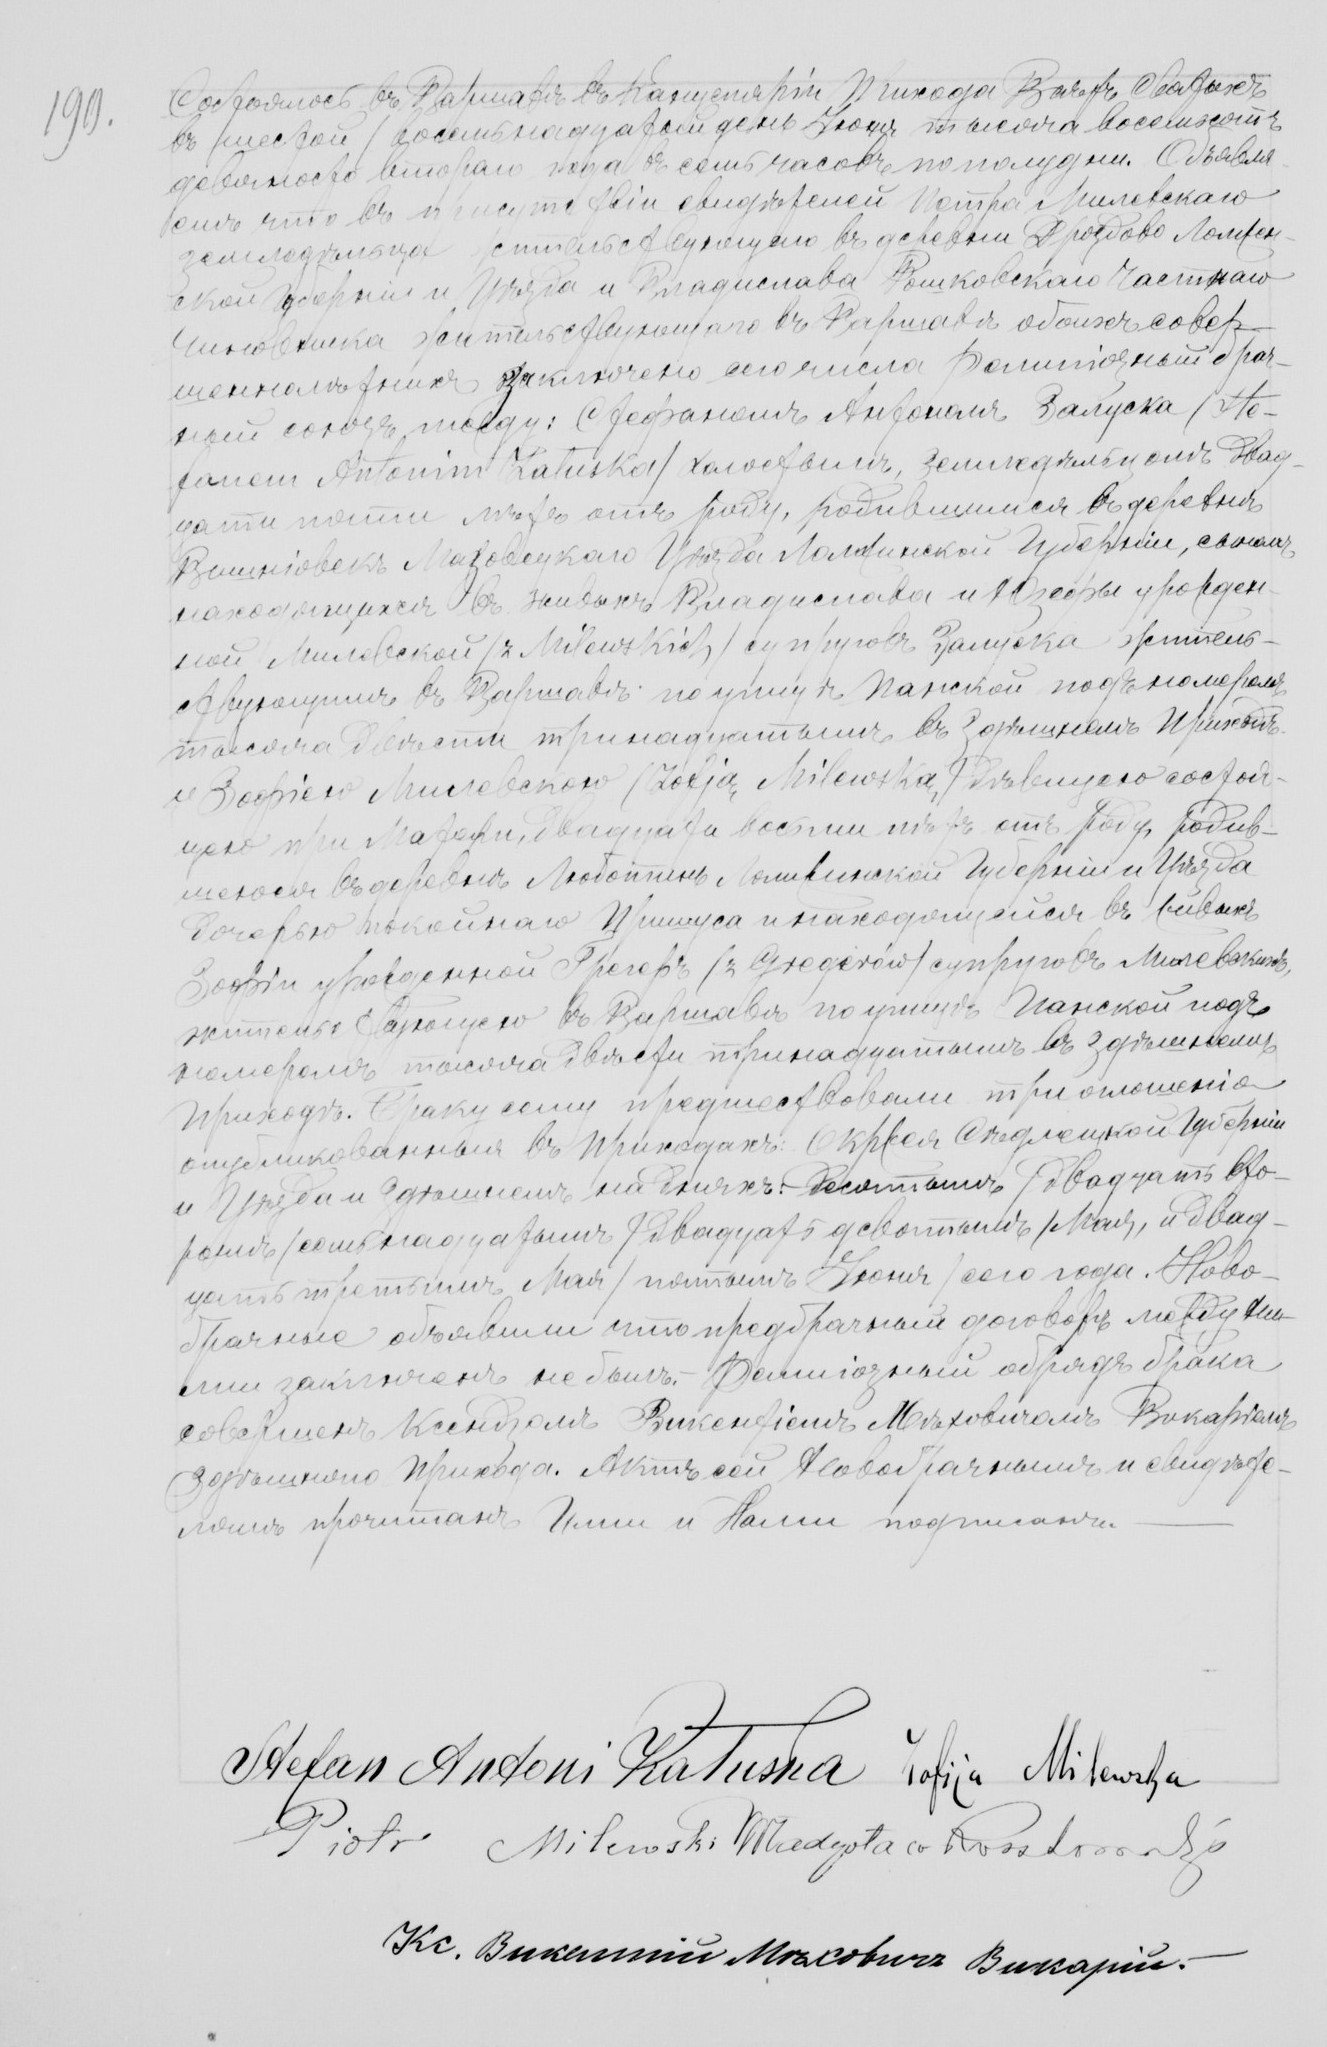 190.
Состоялось въ Варшавѣ въ Канцеляріи Прихода Всѣхъ Святыхъ
въ шестой / восемьнадцатый день Іюня тысяча восемьсотъ
девяносто втораго года въ семь часовъ по полудни. Объявля-
емъ что въ присутствіи свидѣтелей Петра Милевскаго
земледѣльца жительствующаго въ деревни Дроздово Ломжин-
ской Губерніи и Уѣзда и Владислава Рошковскаго Частнаго
Чиновника жительствующаго въ Варшавѣ обоихъ совер-
шеннолѣтнихъ заключено сего числа Религіозный брач-
ный союзъ между: Стефаномъ Антономъ Залуска / Ste-
fanem Antonim Załuska / холостымъ, земледѣльцомъ двад-
цати пяти лѣтъ отъ роду, родившимся въ деревнѣ
Вишніовекъ Мазовецкаго Уѣзда Ломжинской Губерніи, сыномъ
находящихся въ живыхъ Владислава и Юзефы урожден-
ной Милевской / z Milewskich / супруговъ Залуска житель-
ствующимъ въ Варшавѣ по улицѣ Панской подъ номеромъ
тысяча двѣсти тринадцатымъ въ Здѣшнемъ Приходѣ.
и Зофіею Милевскою / Zofją Milewską / дѣвицею состоя-
щею при Матери, двадцати восьми лѣтъ отъ роду, родив-
шеюся въ деревнѣ Люботынь Ломжинской Губерніи и Уѣзда
дочерью покойнаго и находящейся въ живыхъ
Зофіи урожденной Грегеръ / z Gregerów / супруговъ Милевскихъ,
жительствующею въ Варшавѣ по улицѣ Панской подъ
номеромъ тысяча двѣсти тринадцатымъ въ здѣшнемъ
Приходѣ. Браку сему предшествовали три оглашенія
опубликованныя въ Приходахъ: Сѣдлецкой Губерніи
и Уѣзда и Здѣшнемъ на дняхъ: десятымъ / двадцать вто-
рымъ / семьнадцатымъ / двадцать девятымъ / Мая, и двад-
цать третьимъ Мая / пятымъ Іюня / сего года. Ново-
брачные объявили что предбрачный договоръ между ни-
ми заключенъ не былъ. – Религіозный обрядъ брака
совершенъ Ксендзомъ Викентіемъ Мѣховичомъ Викаріемъ
Здѣшняго Прихода. Актъ сей Новобрачнымъ и свидѣте-
лямъ прочитанъ Ими и Нами подписанъ. —
Stefan Antoni Załuska Zofija Milewska
Piotr Milewski Władysław Roszkowski
Кс. Викентій Мѣховичъ Викарій. —